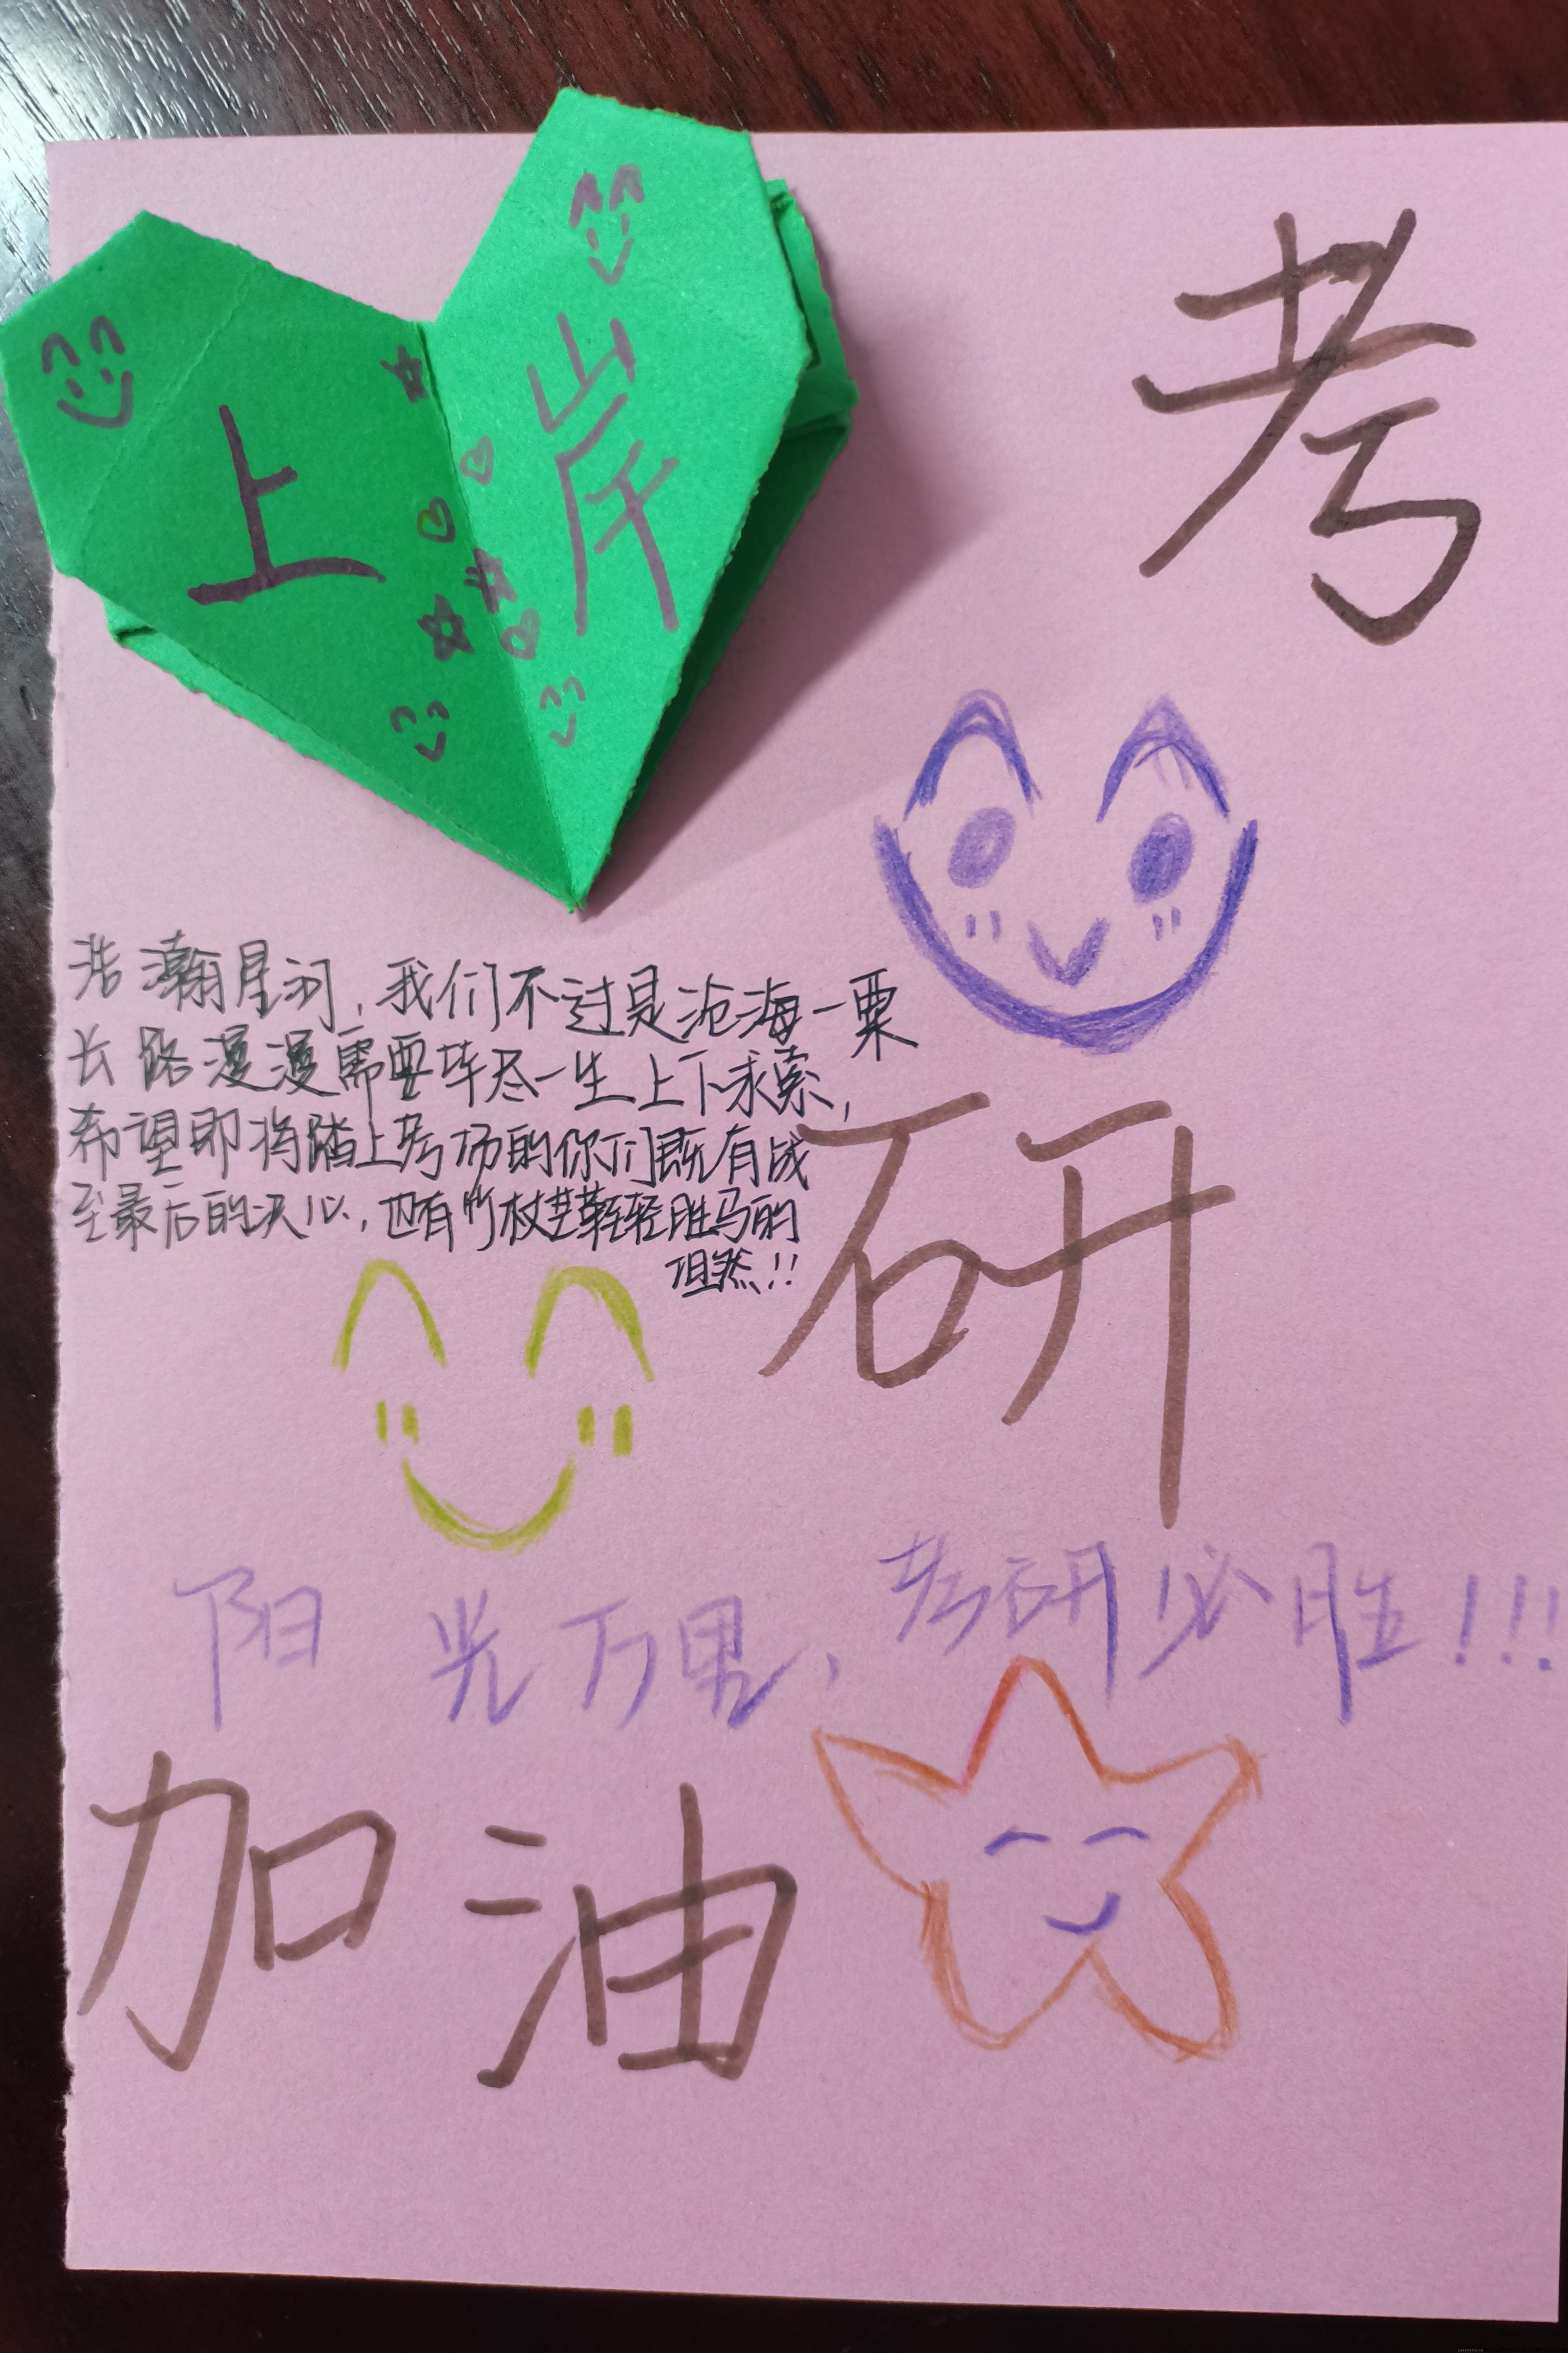 上岸
考
浩瀚星河,我们不过是沧海一粟
长路漫漫需要毕尽一生上下求索,
希望即将踏上考场的你们既有战
至最后的决心,也有竹杖芒鞋轻胜马的
坦然!!
研
阳光万里,考研必胜!!!
加油